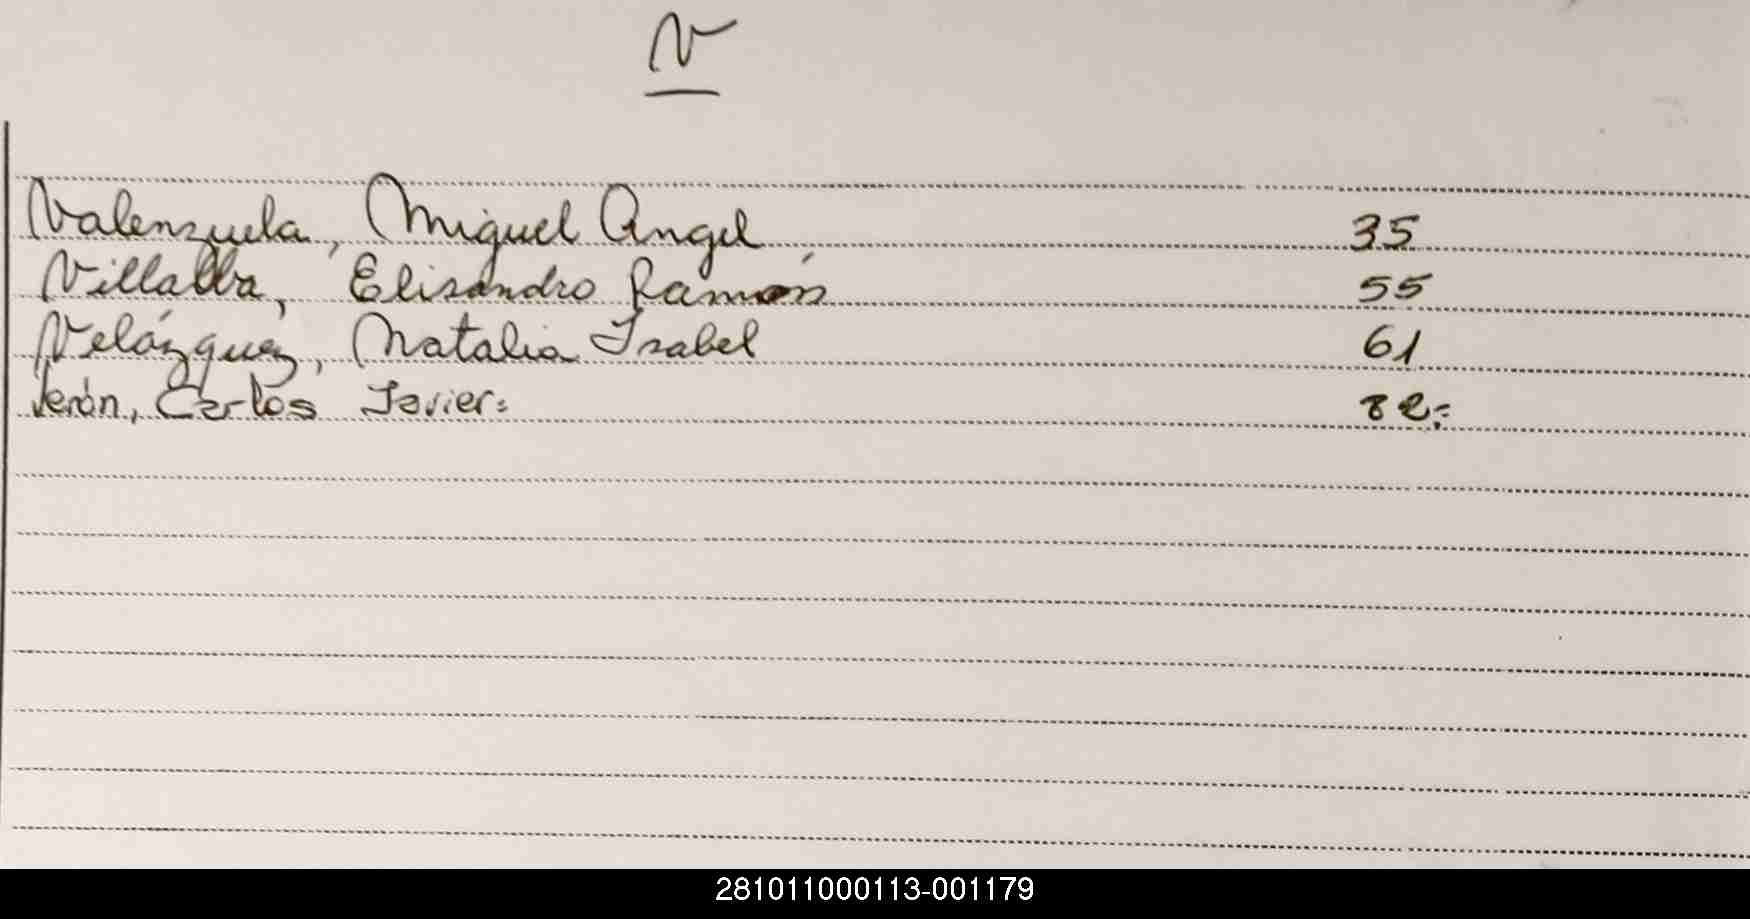 V
Valenzuela, Miguel Angel 35
Villalba, Elisandro Ramón 55
Velázquez, Natalia Isabel 61
Verón, Carlos Javier= 82=
281011000113-001179